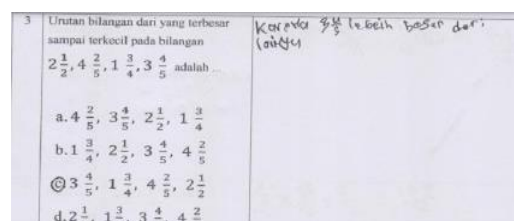 3 Urutan bilangan dari yang terbesar
sampai terkecil pada bilangan
2 1/2, 4 2/5, 1 3/4, 3 4/5 adalah ...
a. 4 2/5, 3 4/5, 2 1/2, 1 3/4
b. 1 3/4, 2 1/2, 3 4/5, 4 2/5
c 3 4/5, 1 3/4, 4 2/5, 2 1/2
d. 2 1/2, 1 3/4, 3 4/5, 4 2/5
Karena 3 4/5 lebeih besar dari